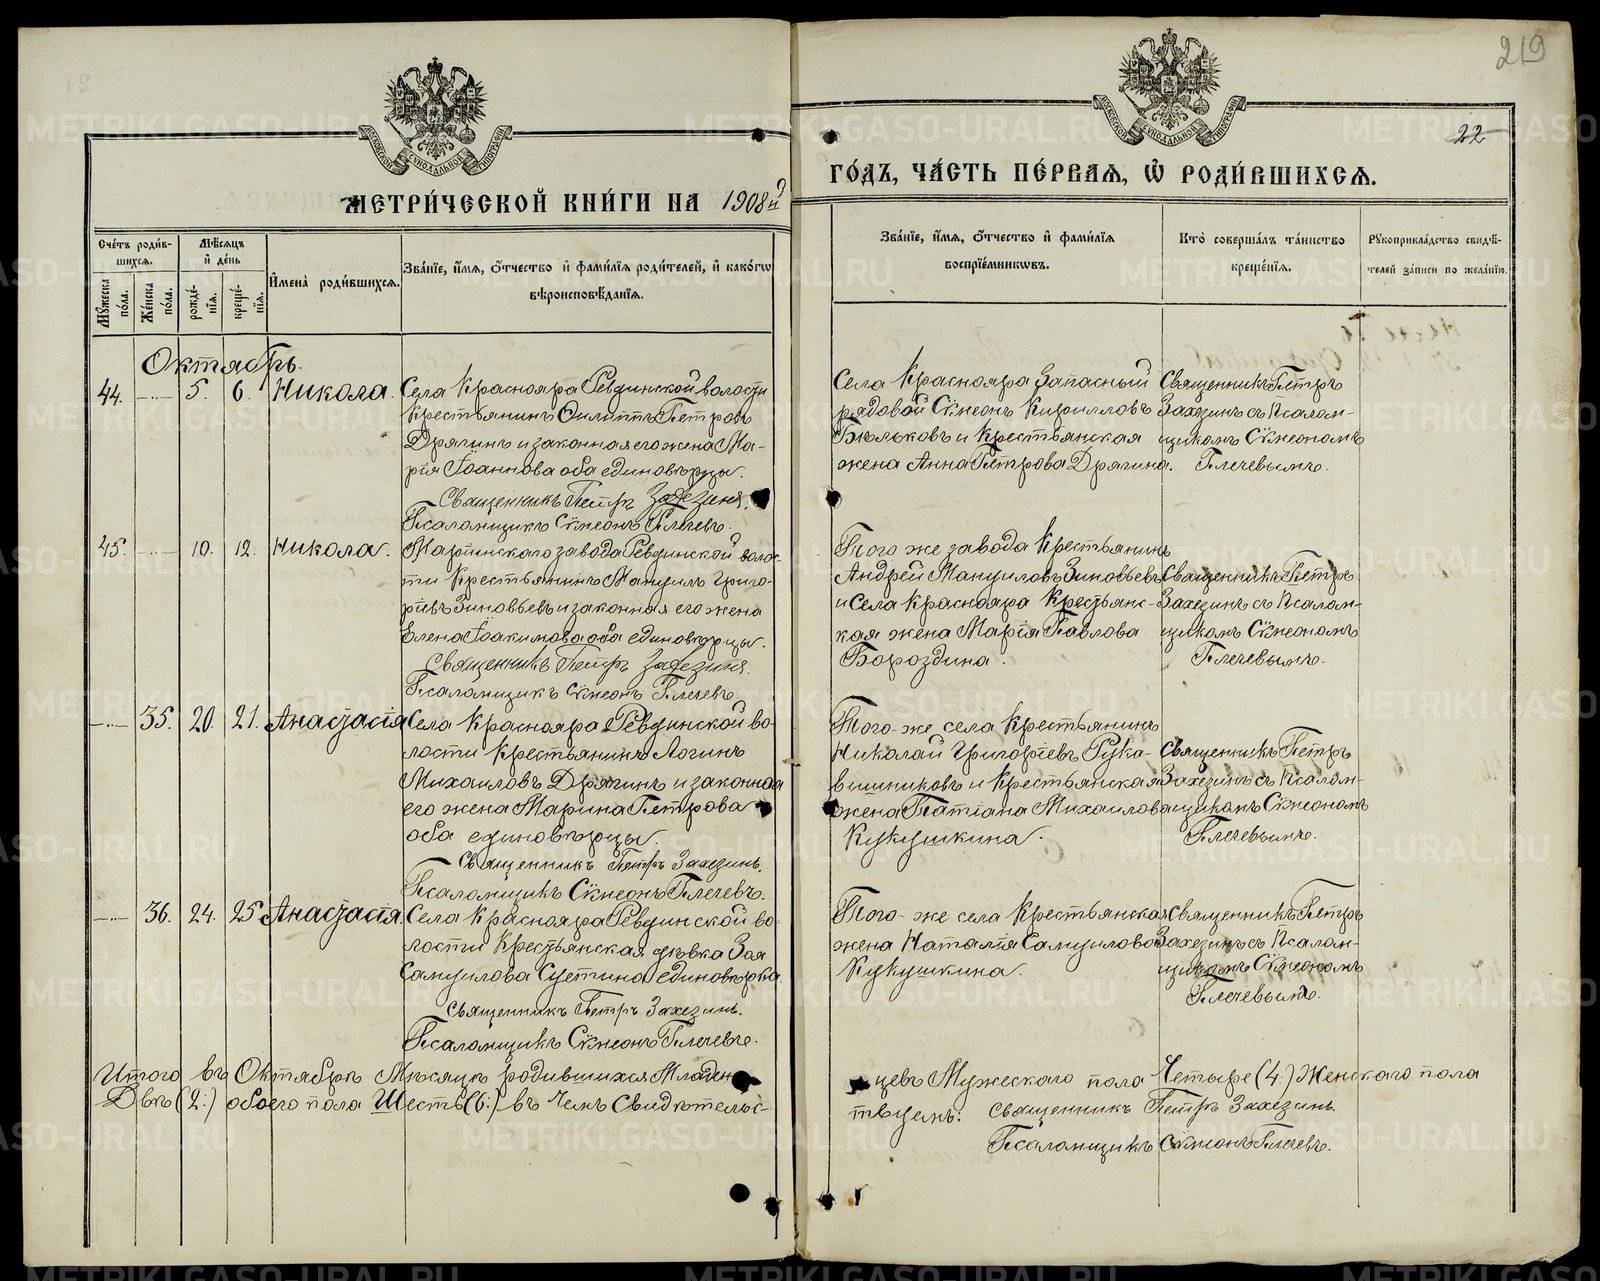 219
22
МЕТРИ́ЧЕСКОЙ КНИ́ГИ НА 1908й
ГО́ДЪ, ЧА́СТЬ ПЕ́РВАѦ, Ѡ҆ РОДИ́ВШИХСѦ.
Сче́тъ роди́вшихсѧ.
Мꙋ́жеска по́ла.
Же́нска по́ла.
Мѣ́сѧцъ и҆ де́нь
рожде́нїѧ.
креще́нїѧ.
И҆мена̀ роди́вшихсѧ.
Зва́нїе, и҆́мѧ, ѻ҆́тчество и҆ фами́лїѧ роди́телей, и҆ како́гѡ
вѣроисповѣ́данїѧ.
Зва́нїе, и҆́мѧ, ѻ҆́тчество и҆ фами́лїѧ
воспрїе́мникѡвъ.
Кто̀ соверша́лъ та́инство
креще́нїѧ.
Рꙋкоприкла́дство свидѣ́-
телей за́писи по жела́нїю.
Октябрь.
44. 5. 6. Никола.
Села Краснояра Ревдинской волости
крестьянинъ Филиппъ Петровъ
Дрягинъ и законная его жена Ма-
рія Іоаннова оба единовѣрцы.
Священникъ Петръ Захезинъ.
Псаломщикъ Сѵмеонъ Плечевъ.
Села Краснояра Запасный
рядовой Сѵмеонъ Кирилловъ
Бѣльковъ и крестьянская
жена Анна Петрова Дрягина.
Священникъ Петръ
Захезинъ съ Псалом-
щикомъ Сѵмеономъ
Плечевымъ.
45. 10. 12. Никола.
Мариинскаго завода Ревдинской волос-
ти Крестьянинъ Мануилъ Григо-
ріевъ Зиновьевъ и законная его жена
Елена Іоакимова оба единовѣрцы.
Священникъ Петръ Захезинъ.
Псаломщикъ Сѵмеонъ Плечевъ.
Того же завода Крестьянинъ
Андрей Мануиловъ Зиновьевъ
и Села Краснояра Крестьянс-
кая жена Марія Павлова
Бороздина.
Священникъ Петръ
Захезинъ съ Псалом-
щикомъ Сѵмеономъ
Плечевымъ.
35. 20. 21. Анастасія
Села Краснояра Ревдинской во-
лости Крестьянинъ Логинъ
Михаиловъ Дрягинъ и законная
его жена Марина Петрова
оба единовѣрцы.
Священникъ Петръ Захезинъ.
Псаломщикъ Сѵмеонъ Плечевъ.
Того-же села Крестьянинъ
Николай Григоріевъ Рука-
вишниковъ и Крестьянская
жена Татіана Михаилова
Кукушкина.
Священникъ Петръ
Захезинъ съ Псалом-
щикомъ Сѵмеономъ
Плечевымъ.
36. 24. 25 Анастасія.
Села Краснояра Ревдинской во-
лости Крестьянская дѣвка Зоя
Самуилова Щетина единовѣрка.
Священникъ Петръ Захезинъ.
Псаломщикъ Сѵмеонъ Плечевъ.
Того-же села Крестьянская
жена Наталія Самуилова
Кукушкина.
Священникъ Петръ
Захезинъ съ Псалом-
щикомъ Сѵмеономъ
Плечевымъ.
Итого въ Октябрѣ Мѣсяцѣ родившихся Младен-
цевъ Мужескаго пола Четыре (4:) Женскаго пола
Двѣ (2:) обоего пола Шесть (6:) въ чемъ Свидѣтельс-
твуемъ: Священникъ Петръ Захезинъ.
Псаломщикъ Сѵмеонъ Плечевъ.
METRIKI.GASO-URAL.RU